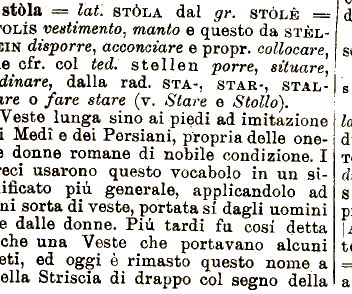 stòla = lat. STÒLA dal gr. STÒLÊ =
TOLÍS vestimento, manto e questo da STÈL-
EIN disporre, acconciare e propr. collocare,
e cfr. col ted. stellen porre, situare,
dinare, dalla rad. STA-, STAR-, STAL-
are o fare stare (v. Stare e Stollo).
Veste lunga sino ai piedi ad imitazione
i Medî e dei Persiani, propria delle one-
e donne romane di nobile condizione. I
reci usarono questo vocabolo in un si-
ificato più generale, applicandolo ad
ni sorta di veste, portata sì dagli uomini
e dalle donne. Più tardi fu così detta
che una Veste che portavano alcuni
eti, ed oggi è rimasto questo nome a
ella Striscia di drappo col segno della